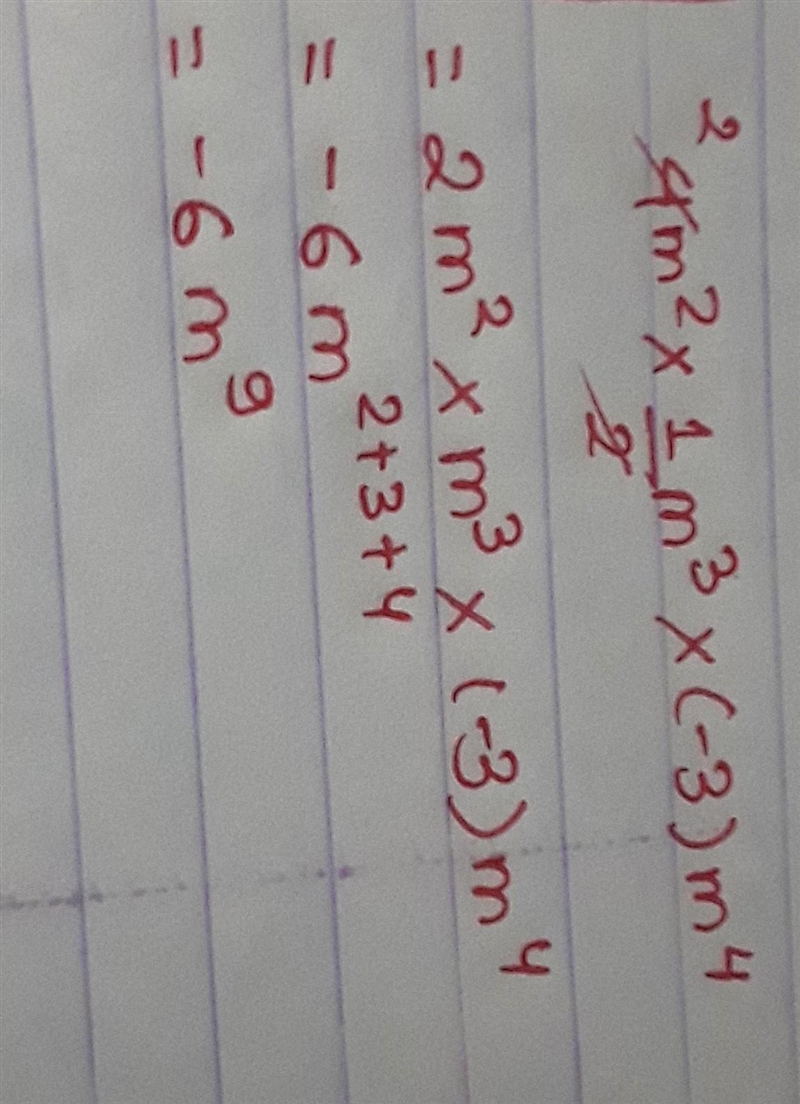 2
4m² × 1/2 m³ × (-3) m⁴
= 2 m² × m³ × (-3) m⁴
= - 6 m²⁺³⁺⁴
= - 6 m⁹